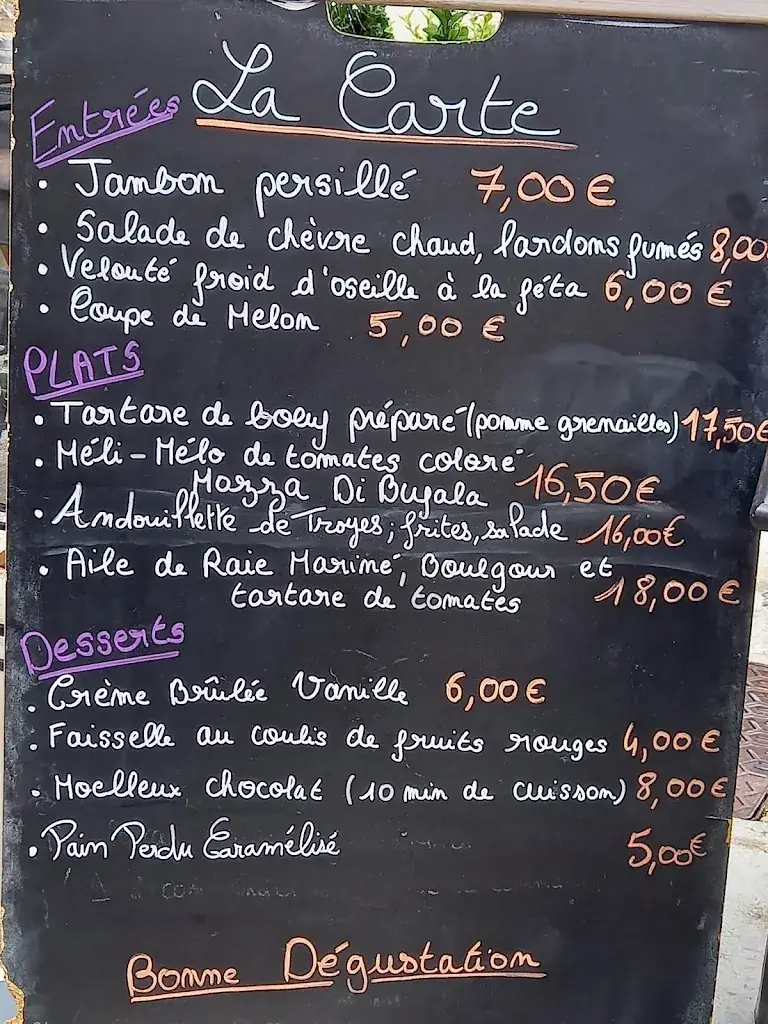 La Carte
Entrées
• Jambon persillé 7,00 €
• Salade de chèvre chaud, lardons fumés 8,00
• Velouté froid d'oseille à la féta 6,00 €
• Coupe de Melon 5,00 €
PLATS
• Tartare de boeuf préparé (pomme grenailles) 17,50€
• Méli-Mélo de tomates coloré
Mozza Di Bufala 16,50€
• Andouillette de Troyes, frites, salade 16,00€
• Aile de Raie Mariné, Boulgour et
tartare de tomates 18,00 €
Desserts
• Crème Brûlée Vanille 6,00 €
• Faisselle au coulis de fruits rouges 4,00 €
• Moelleux chocolat (10 min de cuisson) 8,00 €
• Pain Perdu Caramélisé 5,00€
Bonne Dégustation